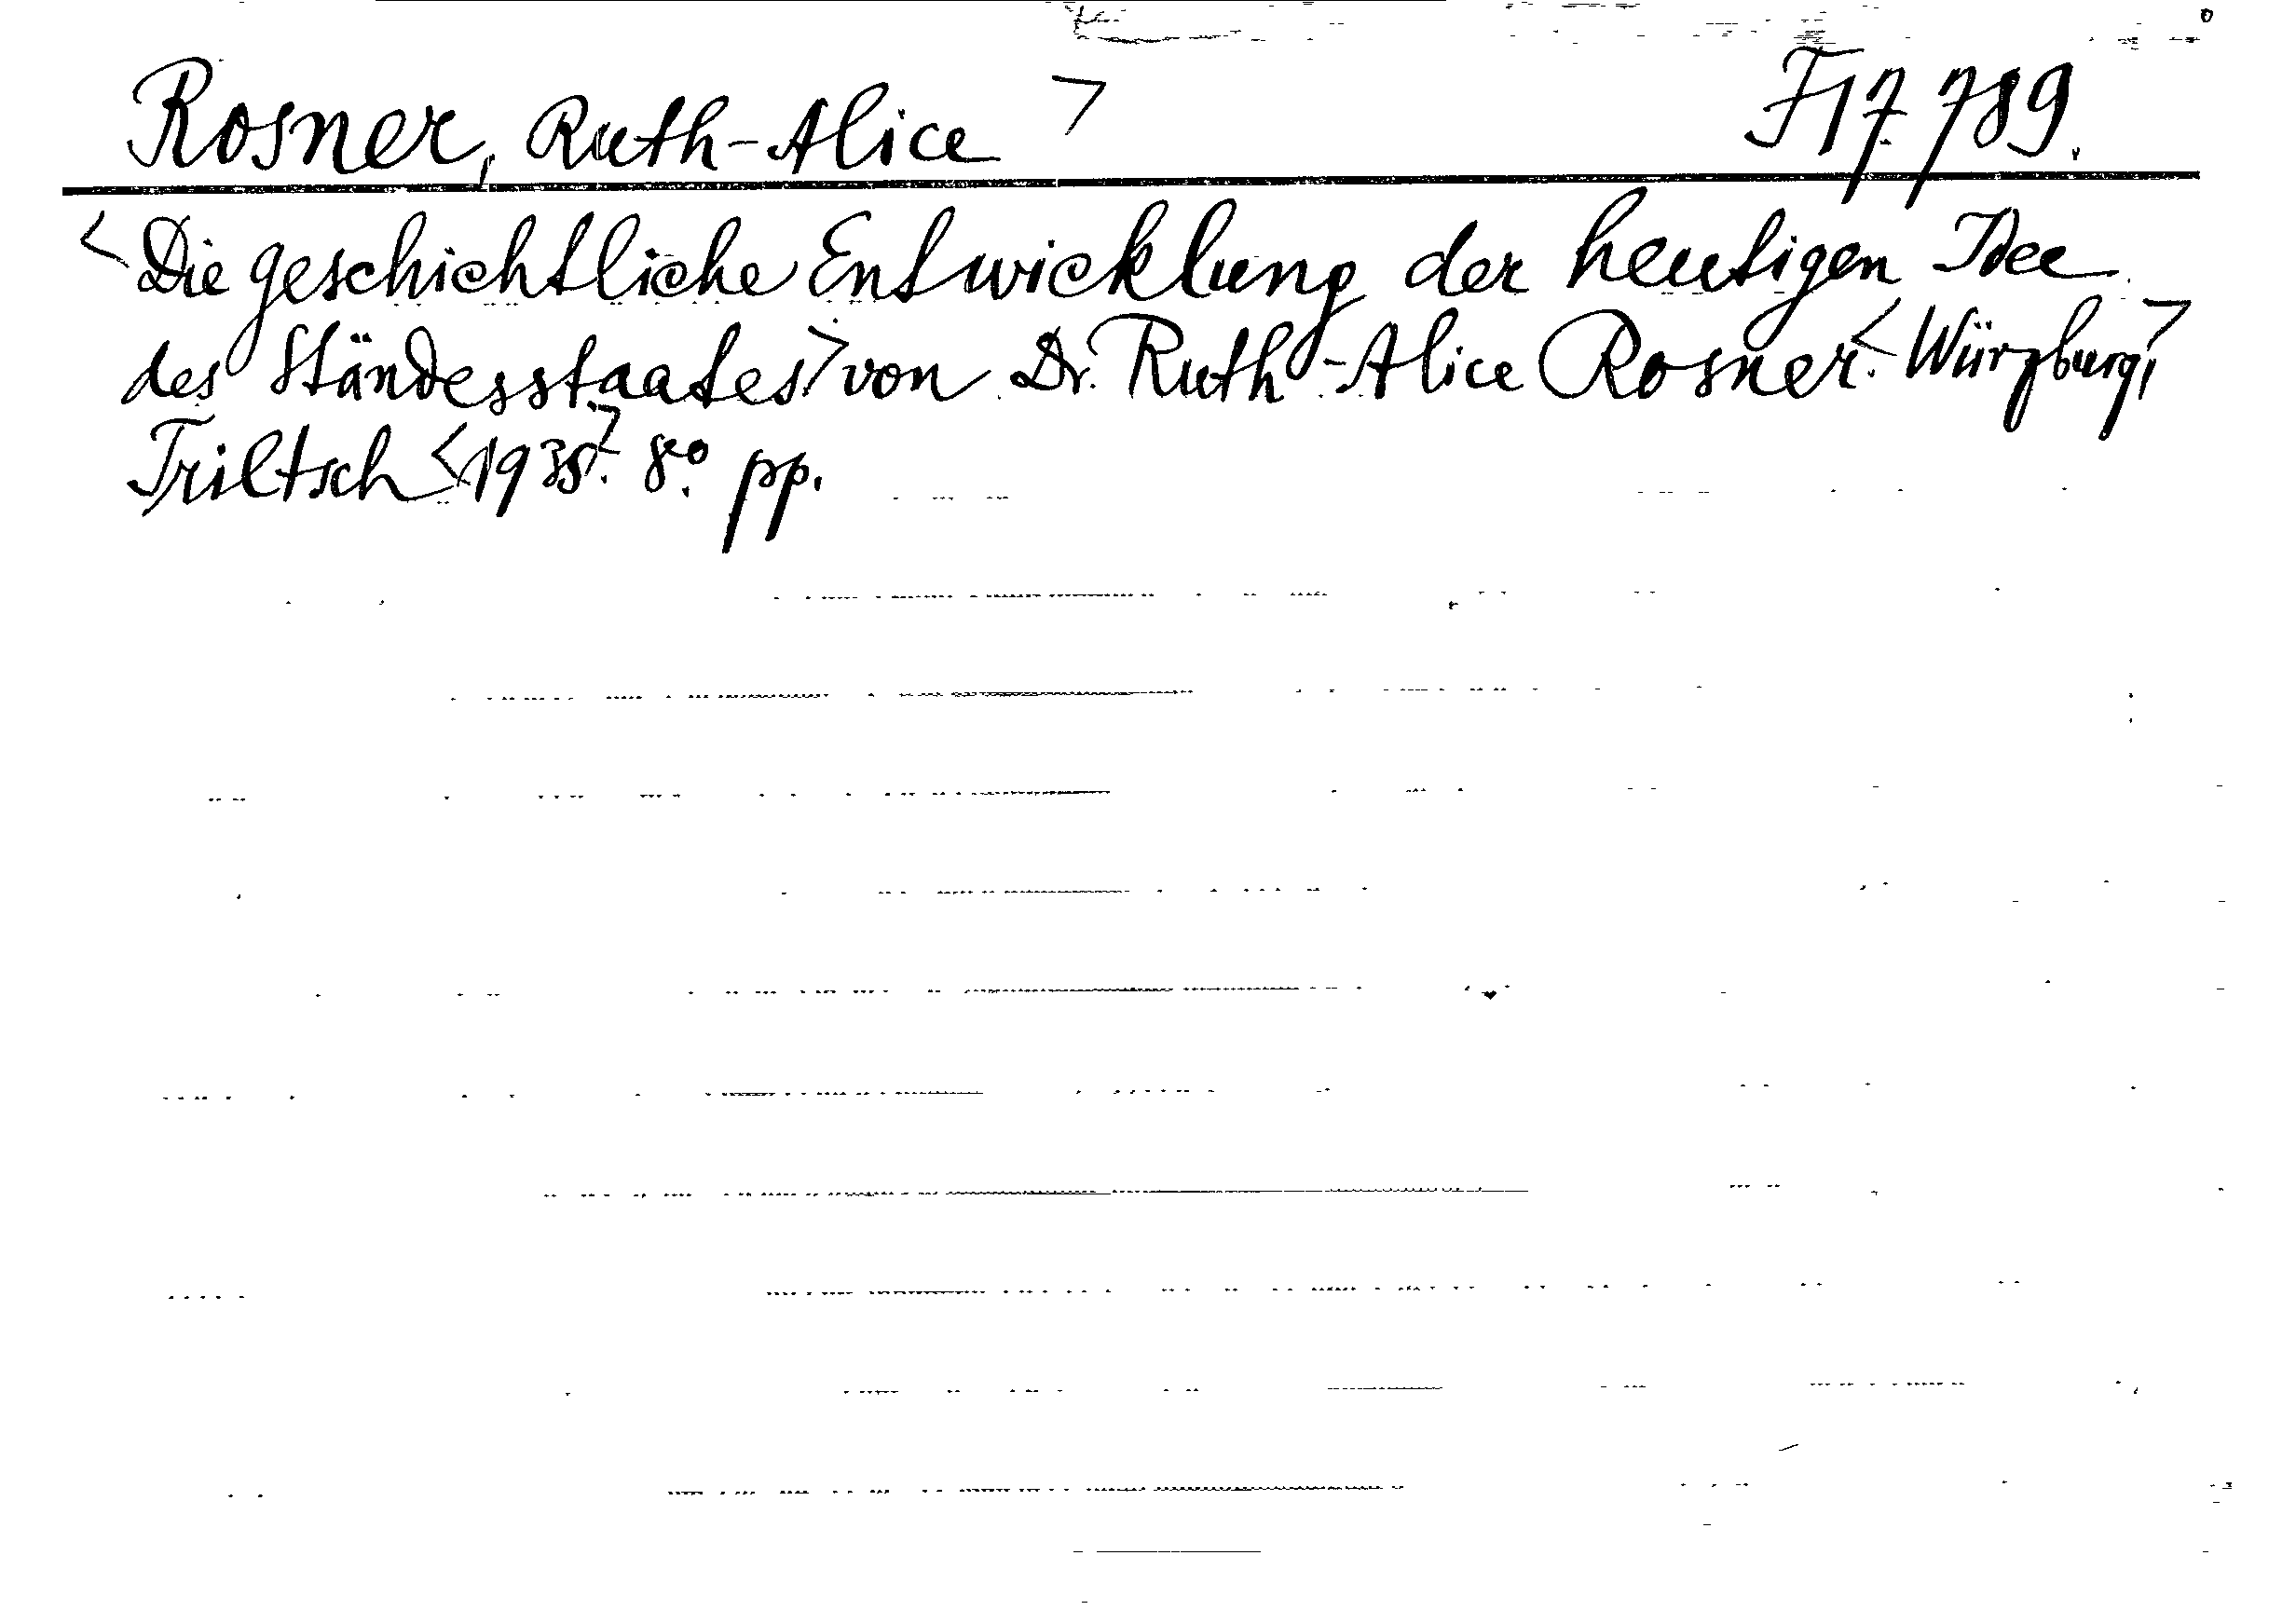 Rosner, Ruth-Alice > F17.789.
<Die geschichtliche Entwicklung der heutigen Idee
des Ständesstaates> von Dr. Ruth-Alice Rosner. <Würzburg,>
Triltsch <1935.> 8.º pp.